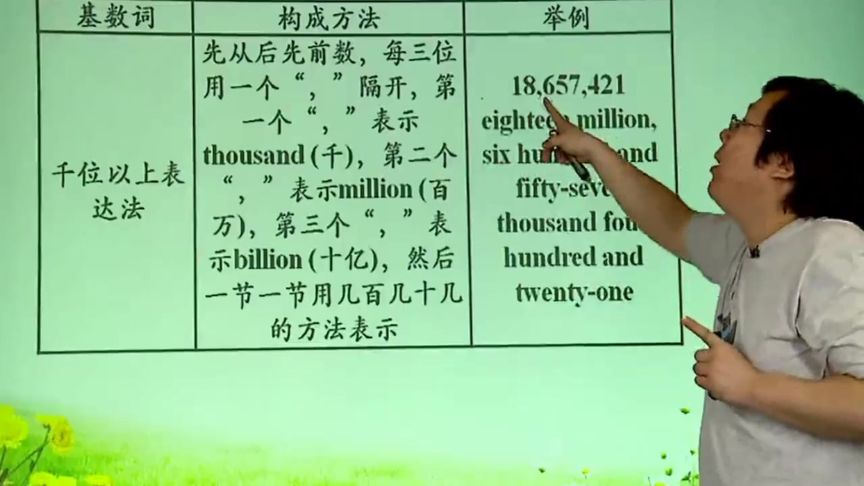 基数词
构成方法
举例
千位以上表
达法
先从后先前数，每三位
用一个“，”隔开，第
一个“，”表示
thousand (千)，第二个
“，”表示million (百
万)，第三个“，”表
示billion (十亿)，然后
一节一节用几百几十几
的方法表示
18,657,421
eighteen million,
six and
fifty-seven
thousand four
hundred and
twenty-one